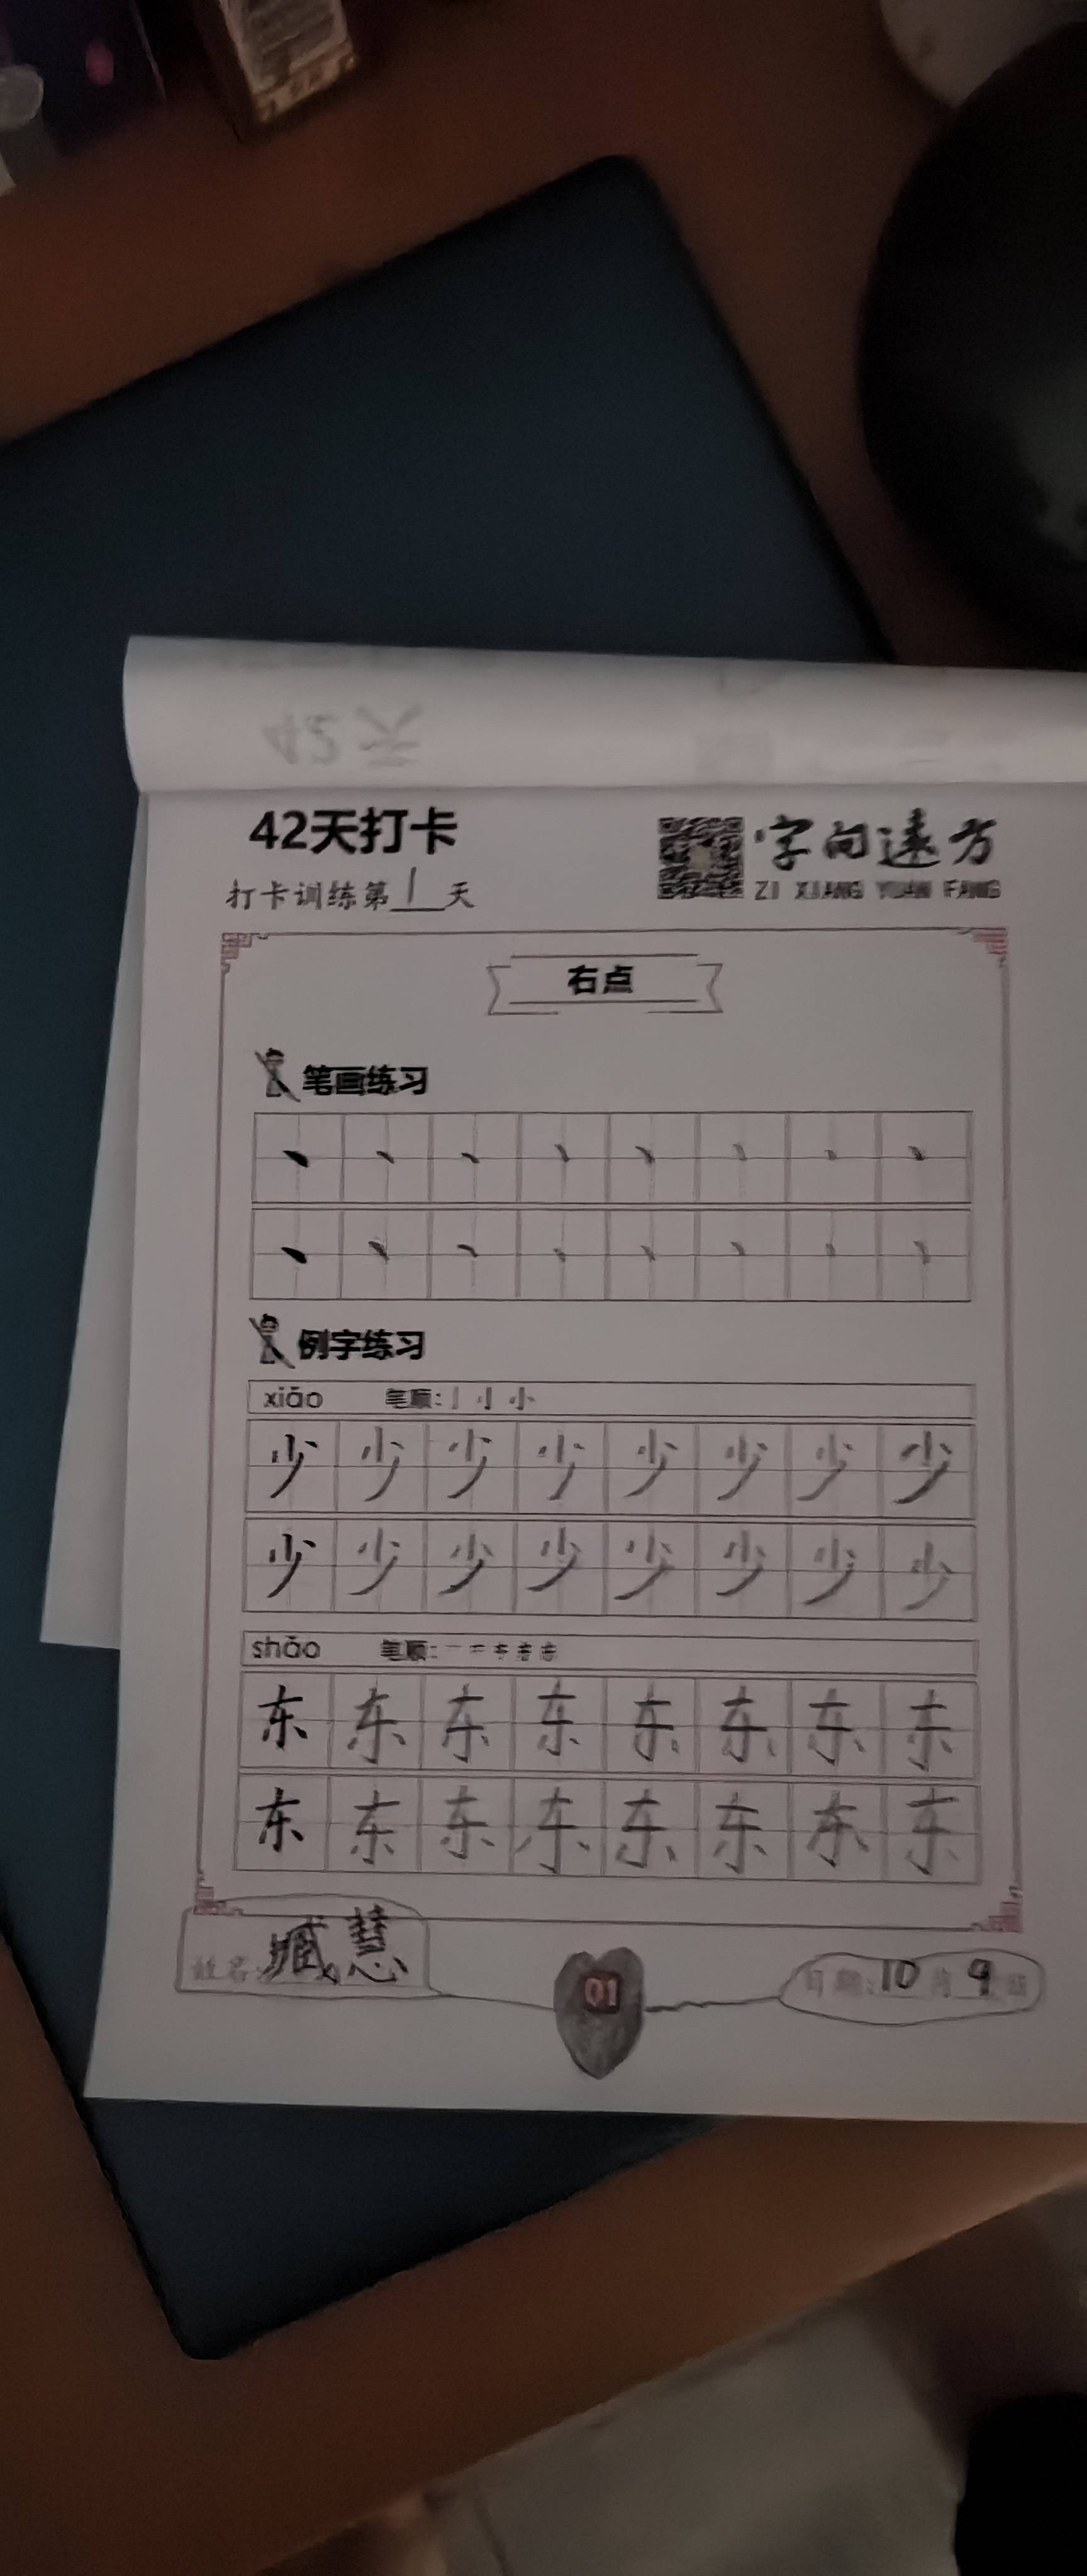 42天
42天打卡
字向远方
打卡训练第1天
ZI XIANG YUAN FANG
右点
笔画练习
丶 丶 丶 丶 丶 丶 丶 丶
丶 丶 丶 丶 丶 丶 丶 丶
例字练习
xiǎo 笔顺: 亅 小 小
少 少 少 少 少 少 少 少
少 少 少 少 少 少 少 少
shǎo 笔顺:
东 东 东 东 东 东 东 东
东 东 东 东 东 东 东 东
姓名: 臧慧
01
日期: 10月9日